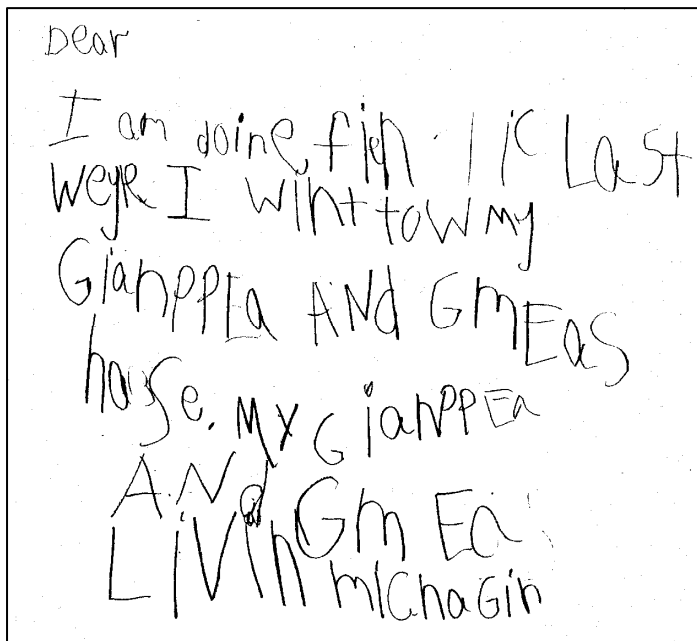 Dear
I am doine fien. lic Last
weye I wint tow my
GianppEa AND GmEas
house. my GianppEa
AND GmEa
LiVin michaGin